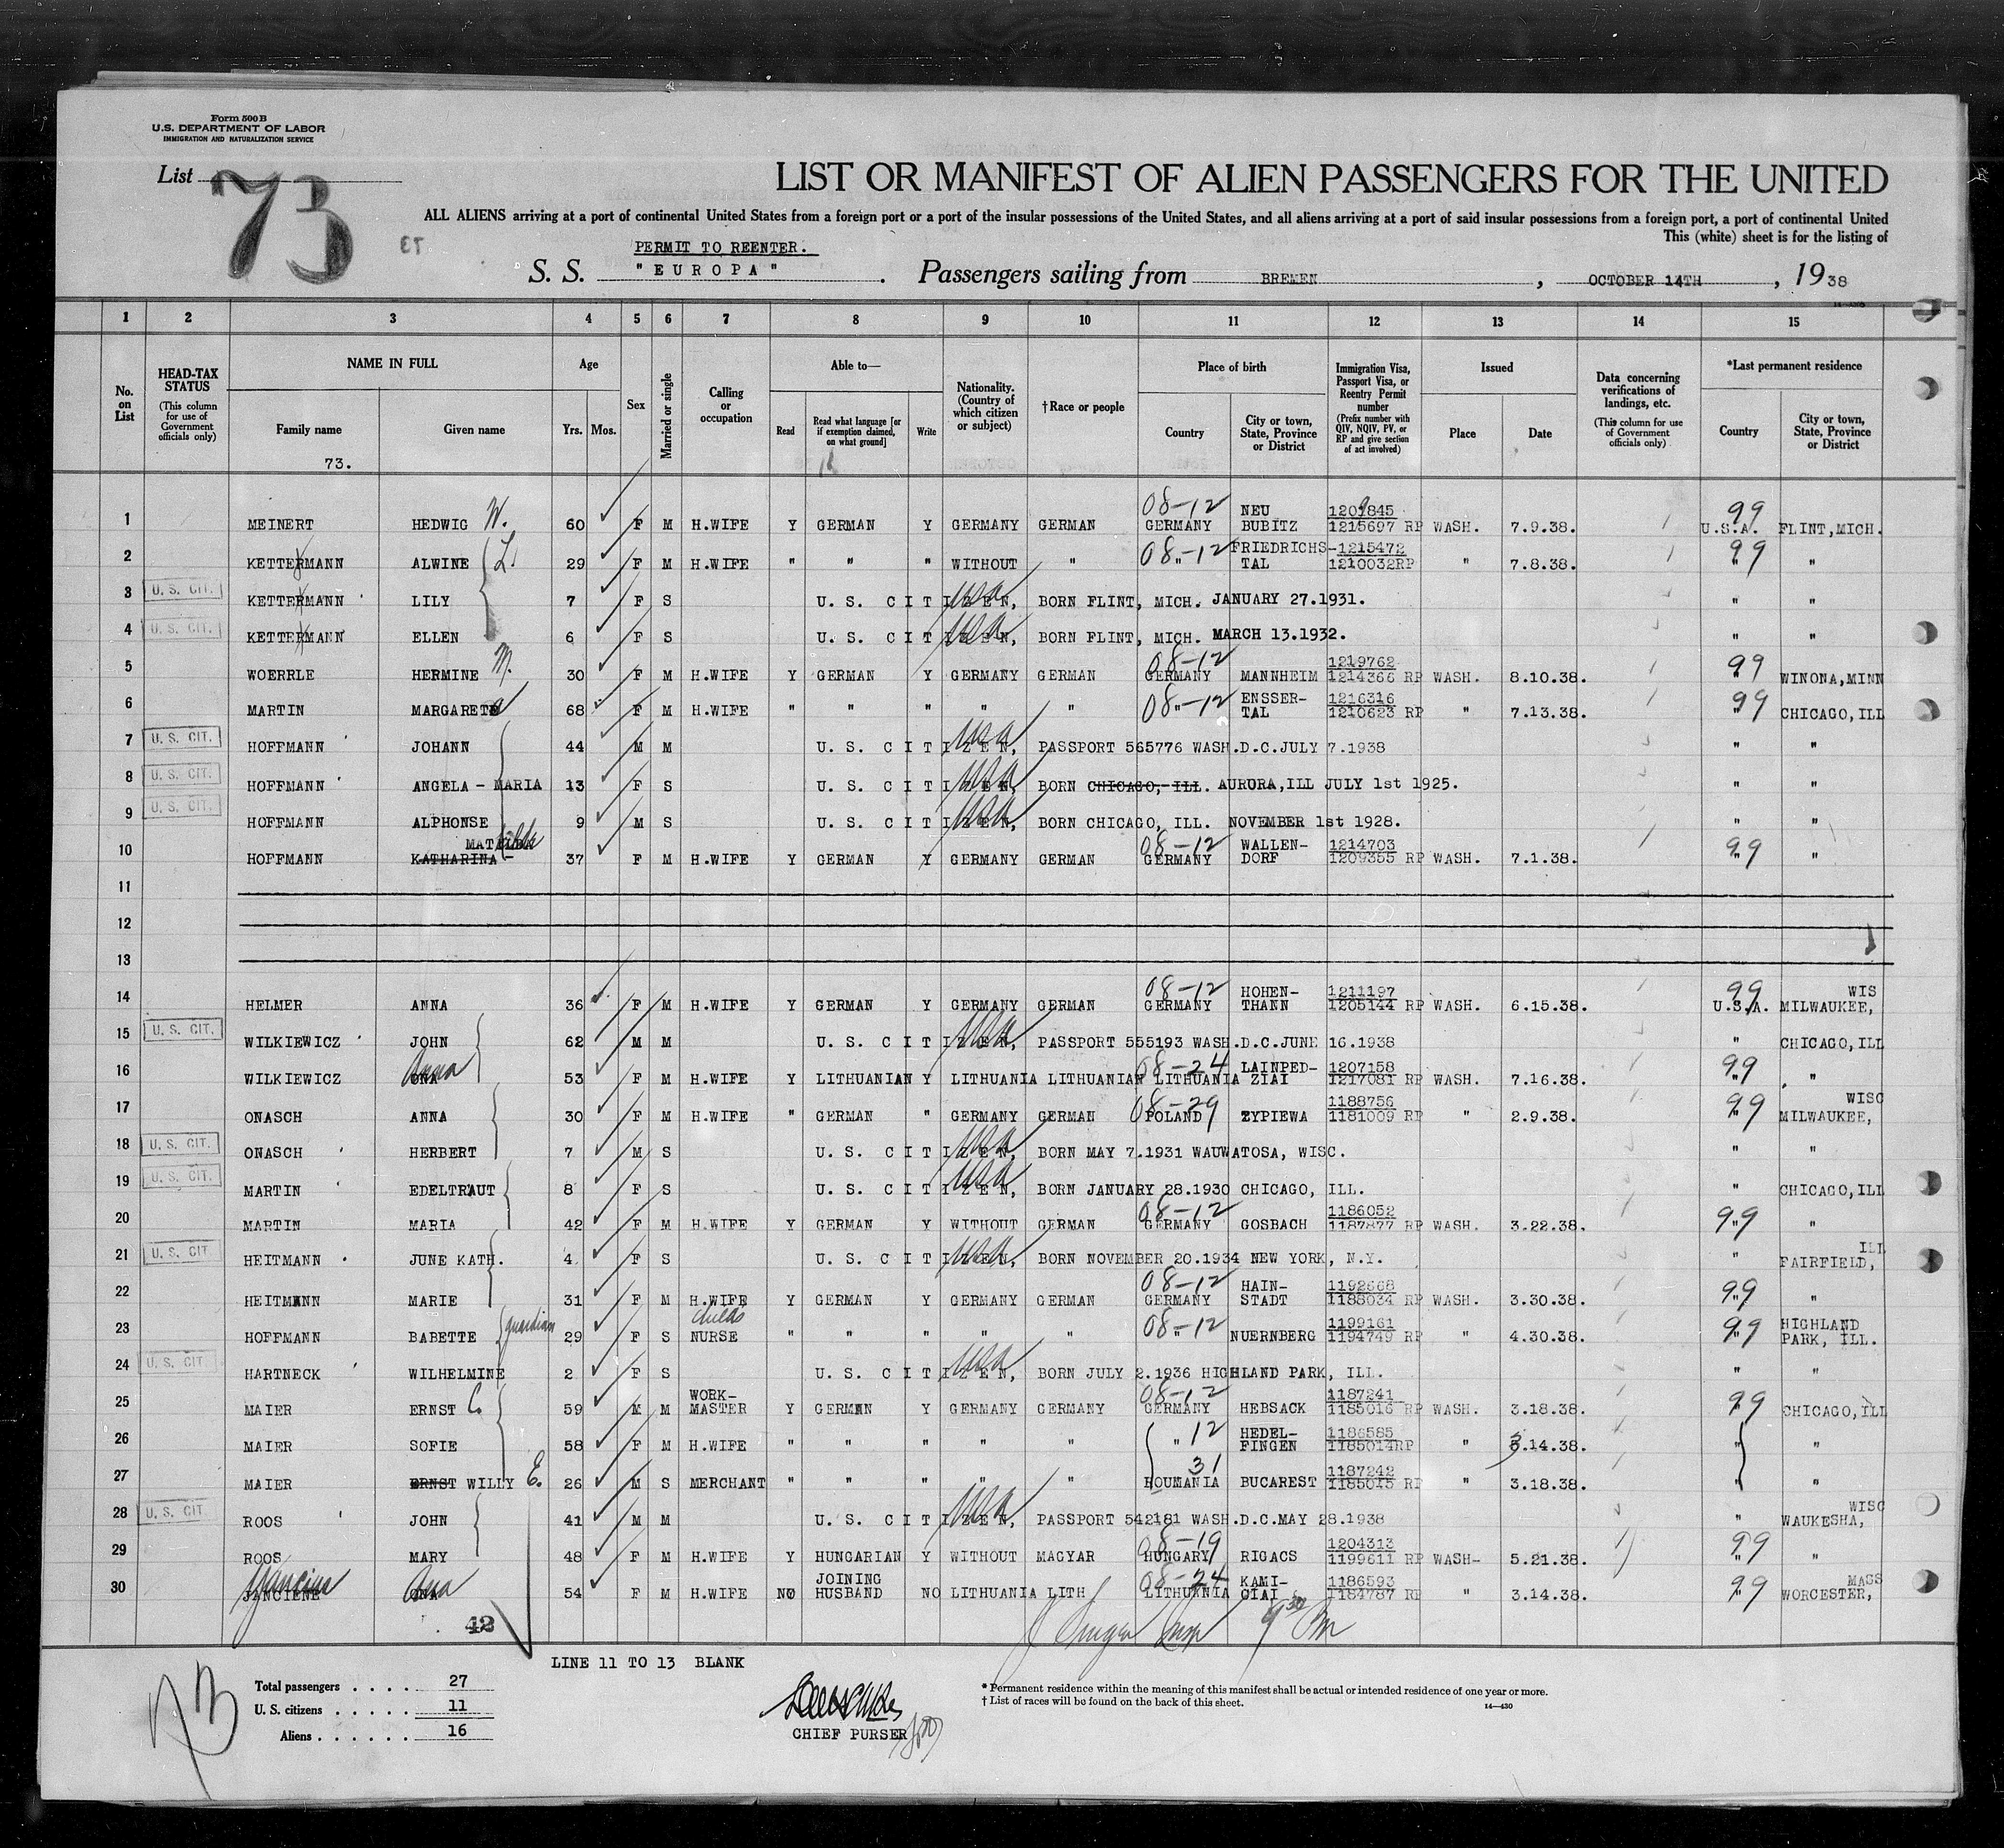 Form 500 B
U.S. DEPARTMENT OF LABOR
IMMIGRATION AND NATURALIZATION SERVICE
List 73
LIST OR MANIFEST OF ALIEN PASSENGERS FOR THE UNITED
ALL ALIENS arriving at a port of continental United States from a foreign port or a port of the insular possessions of the United States, and all aliens arriving at a port of said insular possessions from a foreign port, a port of continental United
This (white) sheet is for the listing of
PERMIT TO REENTER.
S. S. "EUROPA" . Passengers sailing from BREMEN , OCTOBER 14TH , 19 38
1 2 3 4 5 6 7 8 9 10 11 12 13 14 15
No. on List
HEAD-TAX STATUS (This column for use of Government officials only)
NAME IN FULL Family name Given name
Age Yrs. Mos.
Sex
Married or single
Calling or occupation
Able to— Read Read what language [or if exemption claimed, on what ground] Write
Nationality. (Country of which citizen or subject)
†Race or people
Place of birth Country City or town, State, Province or District
Immigration Visa, Passport Visa, or Reentry Permit number (Prefix number with QIV, NQIV, PV, or RP and give section of act involved)
Issued Place Date
Data concerning verifications of landings, etc. (This column for use of Government officials only)
*Last permanent residence Country City or town, State, Province or District
73.
1 MEINERT HEDWIG W. 60 F M H.WIFE Y GERMAN Y GERMANY GERMAN 08-12 GERMANY NEU BUBITZ 1209845 1215697 RP WASH. 7.9.38. 99 U.S.A. FLINT,MICH.
2 KETTERMANN ALWINE L. 29 F M H.WIFE " " " WITHOUT " 08-12 " FRIEDRICHS-TAL 1215472 1210032RP " 7.8.38. 99 " "
3 U. S. CIT. KETTERMANN LILY 7 F S U. S. CITIZEN, usa BORN FLINT, MICH. JANUARY 27.1931. " "
4 U. S. CIT. KETTERMANN ELLEN 6 F S U. S. CITIZEN, usa BORN FLINT, MICH. MARCH 13.1932. " "
5 WOERRLE HERMINE M. 30 F M H.WIFE Y GERMAN Y GERMANY GERMAN 08-12 GERMANY MANNHEIM 1219762 1214366 RP WASH. 8.10.38. 99 " WINONA,MINN
6 MARTIN MARGARETE a 68 F M H.WIFE " " " " " 08-12 " ENSSER-TAL 1216316 1210623 RP " 7.13.38. 99 " CHICAGO,ILL
7 U. S. CIT. HOFFMANN JOHANN 44 M M U. S. CITIZEN, usa PASSPORT 565776 WASH.D.C.JULY 7.1938 " "
8 U. S. CIT. HOFFMANN ANGELA - MARIA 13 F S U. S. CITIZEN, usa BORN CHICAGO, ILL. AURORA,ILL JULY 1st 1925. " "
9 U. S. CIT. HOFFMANN ALPHONSE 9 M S U. S. CITIZEN, usa BORN CHICAGO, ILL. NOVEMBER 1st 1928. " "
10 HOFFMANN KATHARINA 37 F M H.WIFE Y GERMAN Y GERMANY GERMAN 08-12 GERMANY WALLEN-DORF 1214703 1209355 RP WASH. 7.1.38. 99 " "
11
12
13
14 HELMER ANNA 36 F M H.WIFE Y GERMAN Y GERMANY GERMAN 08-12 GERMANY HOHEN-THANN 1211197 1205144 RP WASH. 6.15.38. 99 U.S.A. MILWAUKEE, WIS
15 U. S. CIT. WILKIEWICZ JOHN 62 M M U. S. CITIZEN, usa PASSPORT 555193 WASH.D.C.JUNE 16.1938 " CHICAGO,ILL
16 WILKIEWICZ ONA Anna 53 F M H.WIFE Y LITHUANIAN Y LITHUANIA LITHUANIAN 08-24 LITHUANIA LAINPED-ZIAI 1207158 1217081 RP WASH. 7.16.38. 99 " "
17 ONASCH ANNA 30 F M H.WIFE " GERMAN " GERMANY GERMAN 08-29 POLAND ZYPIEWA 1188756 1181009 RP " 2.9.38. 99 " MILWAUKEE, WISC
18 U. S. CIT. ONASCH HERBERT 7 M S U. S. CITIZEN, usa BORN MAY 7.1931 WAUWATOSA, WISC. " "
19 U. S. CIT. MARTIN EDELTRAUT 8 F S U. S. CITIZEN, usa BORN JANUARY 28.1930 CHICAGO, ILL. " CHICAGO,ILL
20 MARTIN MARIA 42 F M H.WIFE Y GERMAN Y WITHOUT GERMAN 08-12 GERMANY GOSBACH 1186052 1187877 RP WASH. 3.22.38. 99 " "
21 U. S. CIT. HEITMANN JUNE KATH. 4 F S U. S. CITIZEN, usa BORN NOVEMBER 20.1934 NEW YORK, N.Y. " FAIRFIELD, ILL
22 HEITMANN MARIE 31 F M H.WIFE Y GERMAN Y GERMANY GERMAN 08-12 GERMANY HAIN-STADT 1192668 1188034 RP WASH. 3.30.38. 99 " "
23 HOFFMANN BABETTE guardian 29 F S childs NURSE " " " " " 08-12 " NUERNBERG 1199161 1194749 RP " 4.30.38. 99 " HIGHLAND PARK, ILL.
24 U. S. CIT. HARTNECK WILHELMINE 2 F S U. S. CITIZEN, usa BORN JULY 2.1936 HIGHLAND PARK, ILL. " "
25 MAIER ERNST C. 59 M M WORK-MASTER Y GERMAN Y GERMANY GERMANY 08-12 GERMANY HEBSACK 1187241 1185016 RP WASH. 3.18.38. 99 " CHICAGO,ILL
26 MAIER SOFIE 58 F M H.WIFE " " " " " " 12 HEDEL-FINGEN 1186585 1185014RP " 3.14.38. " "
27 MAIER ERNST WILLY E. 26 M S MERCHANT " " " " " 31 ROUMANIA BUCAREST 1187242 1185015 RP " 3.18.38. " "
28 U. S. CIT. ROOS JOHN 41 M M U. S. CITIZEN, usa PASSPORT 542181 WASH.D.C.MAY 28.1938 " WAUKESHA, WISC
29 ROOS MARY 48 F M H.WIFE Y HUNGARIAN Y WITHOUT MAGYAR 08-19 HUNGARY RIGACS 1204313 1199611 RP WASH- 5.21.38. 99 " "
30 JANCIENE ONA Ana 54 F M H.WIFE NO JOINING HUSBAND NO LITHUANIA LITH 08-24 LITHUANIA KAMI-CIAI 1186593 1184787 RP " 3.14.38. 99 " WORCESTER, MASS
42
LINE 11 TO 13 BLANK
Total passengers . . . . 27
U. S. citizens . . . . . 11
Aliens . . . . . . 16
CHIEF PURSER
* Permanent residence within the meaning of this manifest shall be actual or intended residence of one year or more.
† List of races will be found on the back of this sheet.
14—430